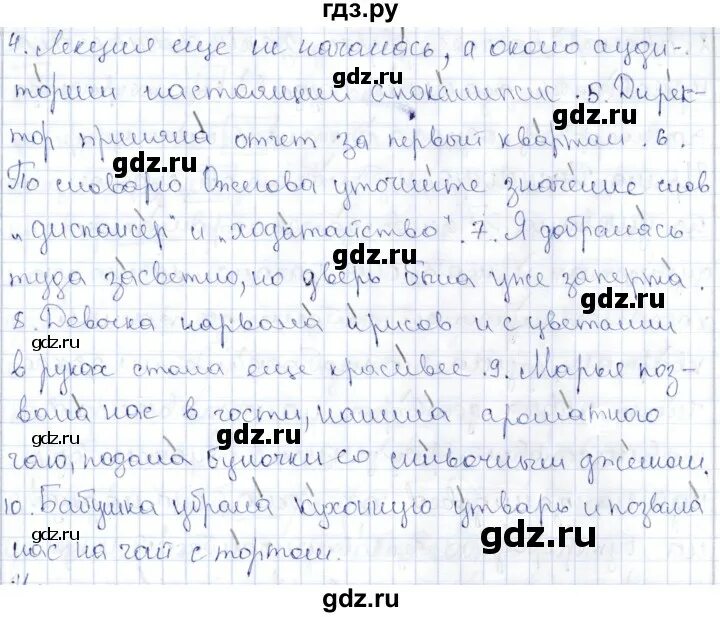 гдз.ру
4. Лекция еще не началась, а около ауди-
gdz.ru
тории настоящий апокалипсис. 5. Дирек-
gdz.ru
тор приняла отчет за первый квартал. 6.
gdz.ru
По словарю Ожегова уточните значение слов
„диспансер" и „ходатайство". 7. Я добралась
gdz.ru
туда засветло, но дверь была уже заперта.
gdz.ru
8. Девочка нарвала ирисов и с цветами
gdz.ru
в руках стала еще красивее. 9. Марья поз-
gdz.ru
вала нас в гости, налила ароматного
gdz.ru
чаю, подала булочки со сливочным джемом.
gdz.ru
10. Бабушка убрала кухонную утварь и позвала
gdz.ru
нас на чай с тортом.
gdz.ru
gdz.ru